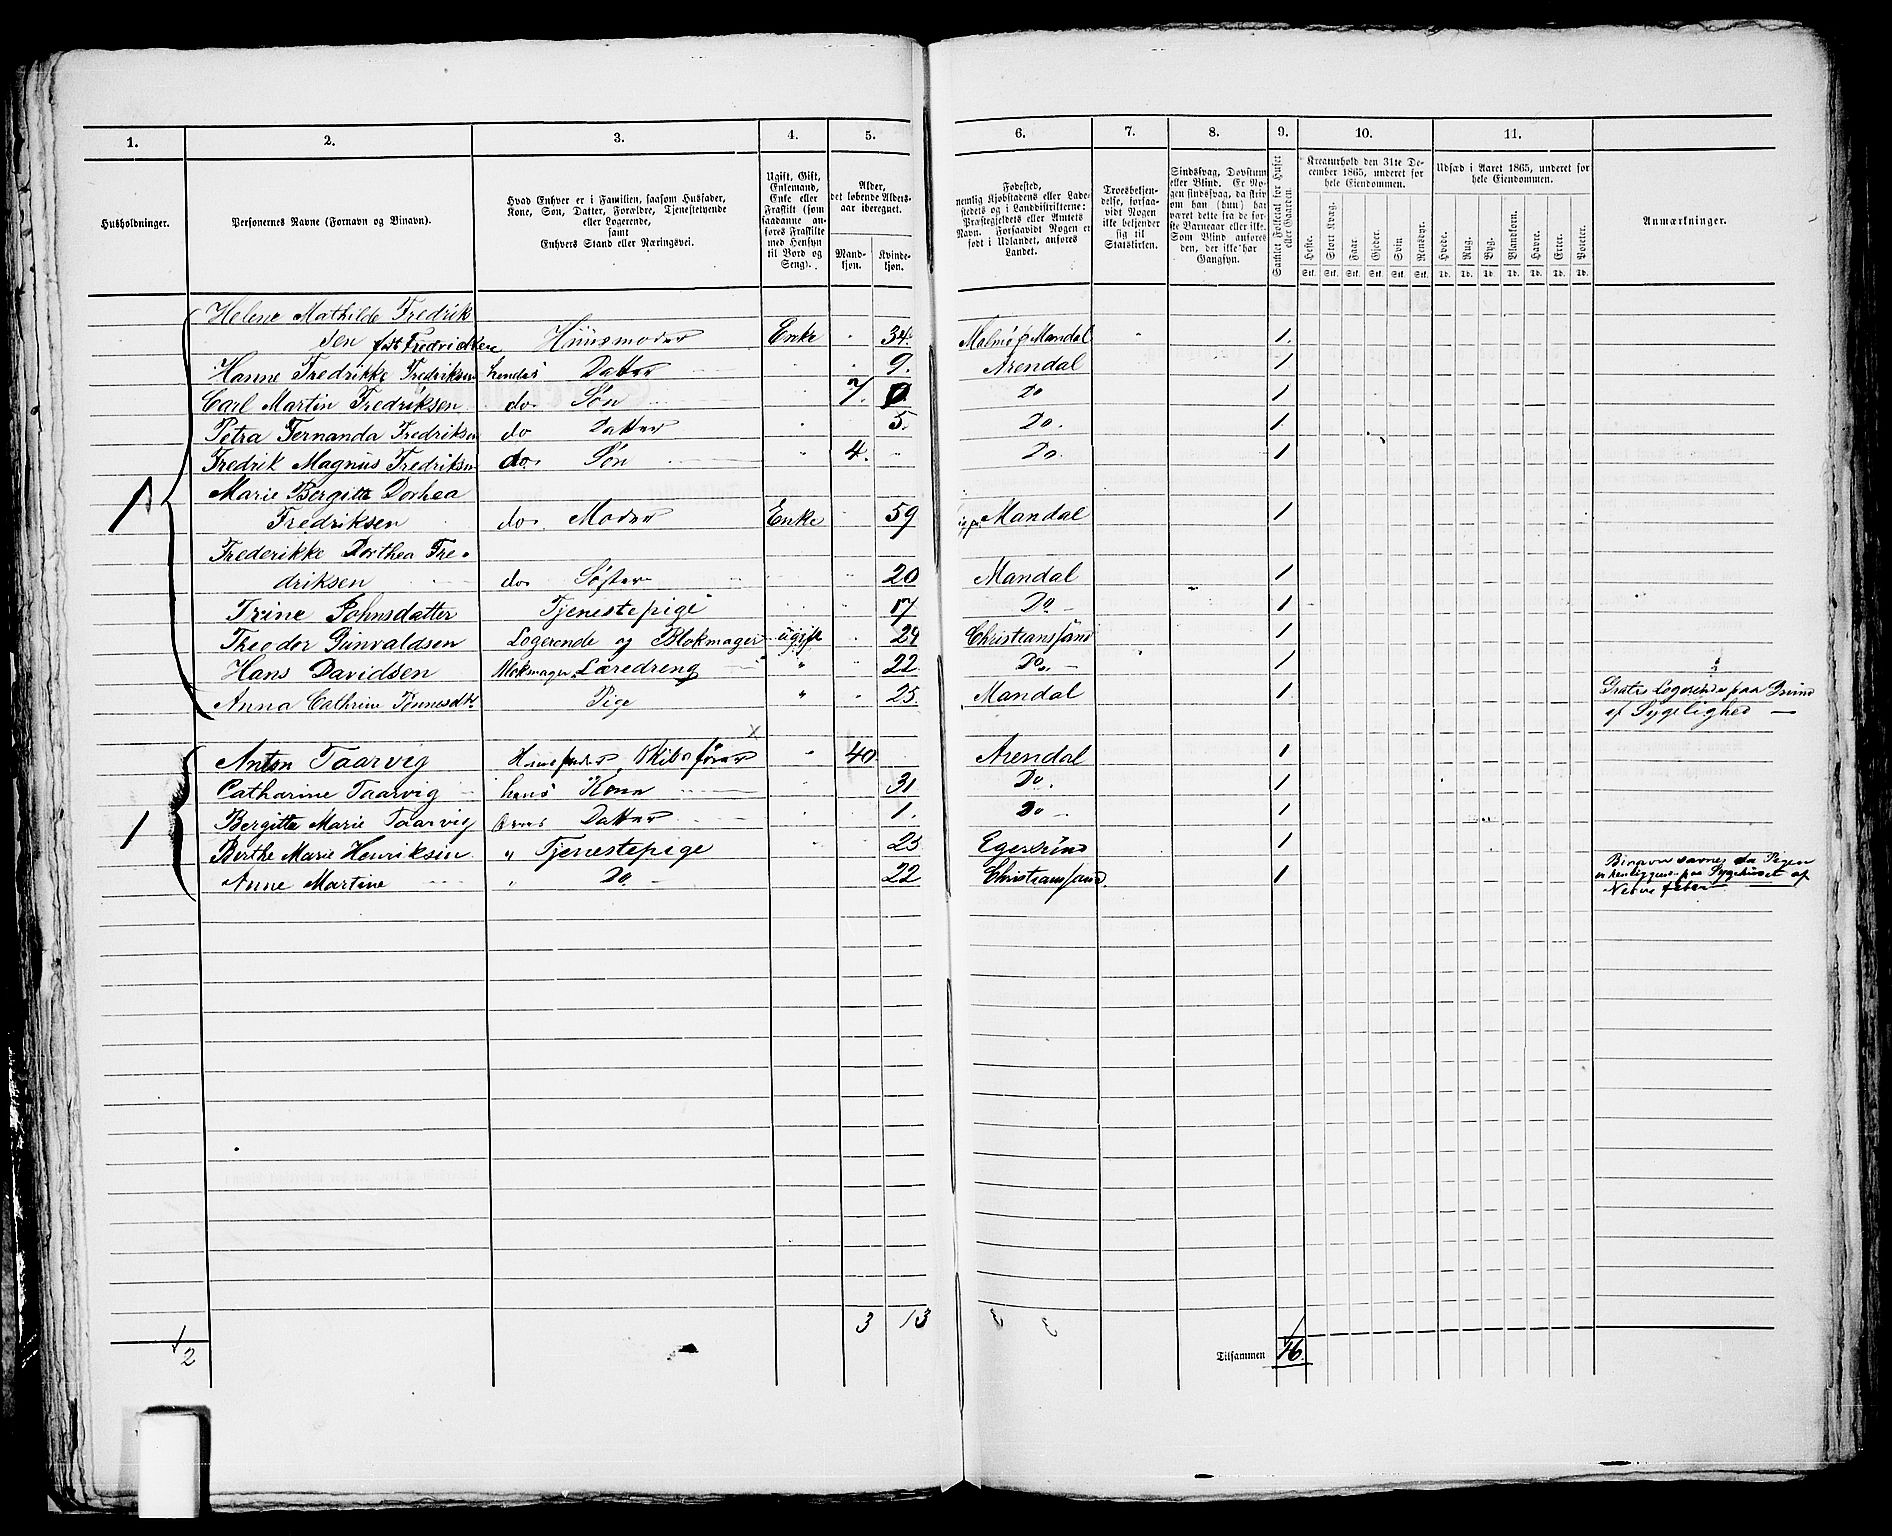 1. 2. 3. 4. 5. 6. 7. 8. 9. 10. 11.
Husholdninger.
Personernes Navne (Fornavn og Binavn).
Hvad Enhver er i Familien, saasom Husfader,
Kone, Søn, Datter, Forældre, Tjenestetyende
eller Logerende,
samt
Enhvers Stand eller Næringsvei.
Ugift, Gift,
Enkemand,
Enke eller
Fraskilt (som
saadanne an-
føres Fraskilte
med Hensyn
til Bord og
Seng).
Alder,
det løbende Alders-
aar iberegnet.
Mand-
kjøn.
Kvinde-
kjøn.
Fødested,
nemlig Kjøbstadens eller Lade-
stedets og i Landdistrikterne:
Præstegjeldets eller Amtets
Navn. Forsaavidt Nogen er
født i Udlandet, anføres
Landet.
Troesbekjen-
delse, forsaa-
vidt Nogen
ikke bekjender
sig til
Statskirken.
Sindssvag, Døvstum
eller Blind. Er No-
gen sindssvag, da skriv
om han (hun) har
været dette fra de før-
ste Barneaar eller ikke.
Som Blind anføres
den, der ikke har
Gangsyn.
Samlet Folketal for Huset
eller Gaarden.
Kreaturhold den 31te De-
cember 1865, underet for
hele Eiendommen.
Heste. Stort Kvæg. Faar. Gjeder. Svin. Rensdyr.
Stk. Stk. Stk. Stk. Stk. Stk.
Udsæd i Aaret 1865, underet for
hele Eiendommen.
Hvede. Rug. Byg. Blandkorn. Havre. Erter. Poteter.
Td. Td. Td. Td. Td. Td. Td.
Anmærkninger.
Helene Mathilde Fredrik
sen født Fredricksen Huusmoder Enke 34. Malmö p Mandal 1.
Hanne Fredrikke Fredriksen hendes Datter 9. Arendal 1
Carl Martin Fredriksen do. Søn 7. Do 1
Petra Fernanda Fredriksen do Datter 5. Do. 1
Fredrik Magnus Fredriksen do. Søn 4. Do. 1
Marie Bergitte Dorhea
1 Fredriksen do. Moder Enke 59 Mandal 1
Frederikke Dorthea Fre-
driksen do Søster 20 Mandal 1
Trine Johnsdatter Tjenestepige 17 Do 1
Theodor Gunvaldsen Logerende og Blokmager ugift 24 Christianssand 1
Hans Davidsen Blokmager Læredreng " 22 Do. 1
Anna Cathrine Tønnesdtr Pige " 25. Mandal 1. Gratis Logerende paa Grund
af Sygelighed
Anton Taarvig Huusfader, Skibsfører 40 Arendal 1
Catharine Taarvig hans Kone 31 Do. 1
1 Bergitte Marie Taarvig Datter 1. Do 1
Berthe Marie Henriksen " Tjenestepige 25 Egersund 1
Anne Martine " Do. 22 Christianssand. 1 Binavn savnes da Pigen
er henliggende paa Sygehuset af
Nerve feber
3 13
2 Tilsammen 16.